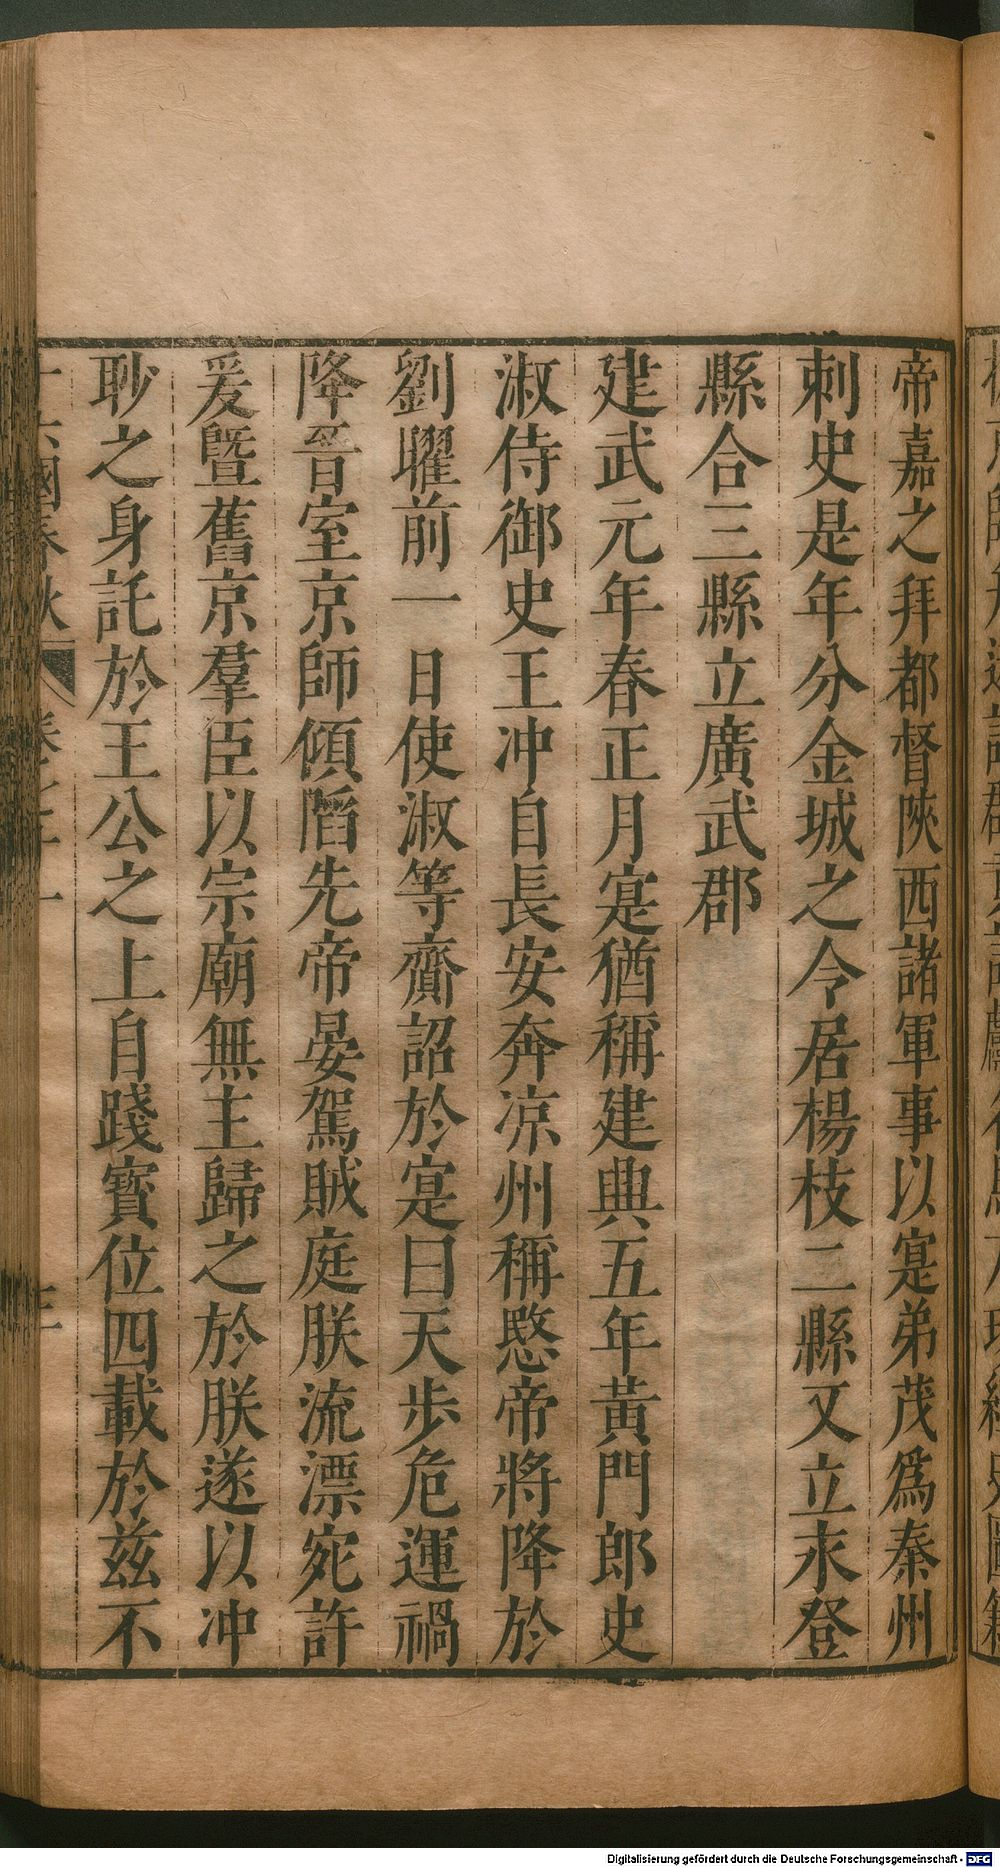 帝嘉之拜都督陝西諸軍事以寔弟茂爲秦州
刺史是年分金城之令居楊枝二縣又立永登
縣合三縣立廣武郡
建武元年春正月寔猶稱建興五年黃門郎史
淑侍御史王冲自長安奔凉州稱愍帝將降於
劉曜前一日使淑等齎詔於寔曰天步危運禍
降晉室京師傾䧟先帝晏駕賊庭朕流漂宛許
爰曁舊京羣臣以宗廟無主歸之於朕遂以冲
眇之身託於王公之上自踐寶位四載於兹不
Digitalisierung gefördert durch die Deutsche Forschungsgemeinschaft - DFG